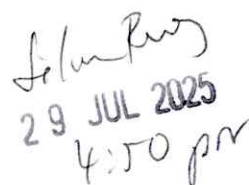 29 JUL 2025
4:50 pm